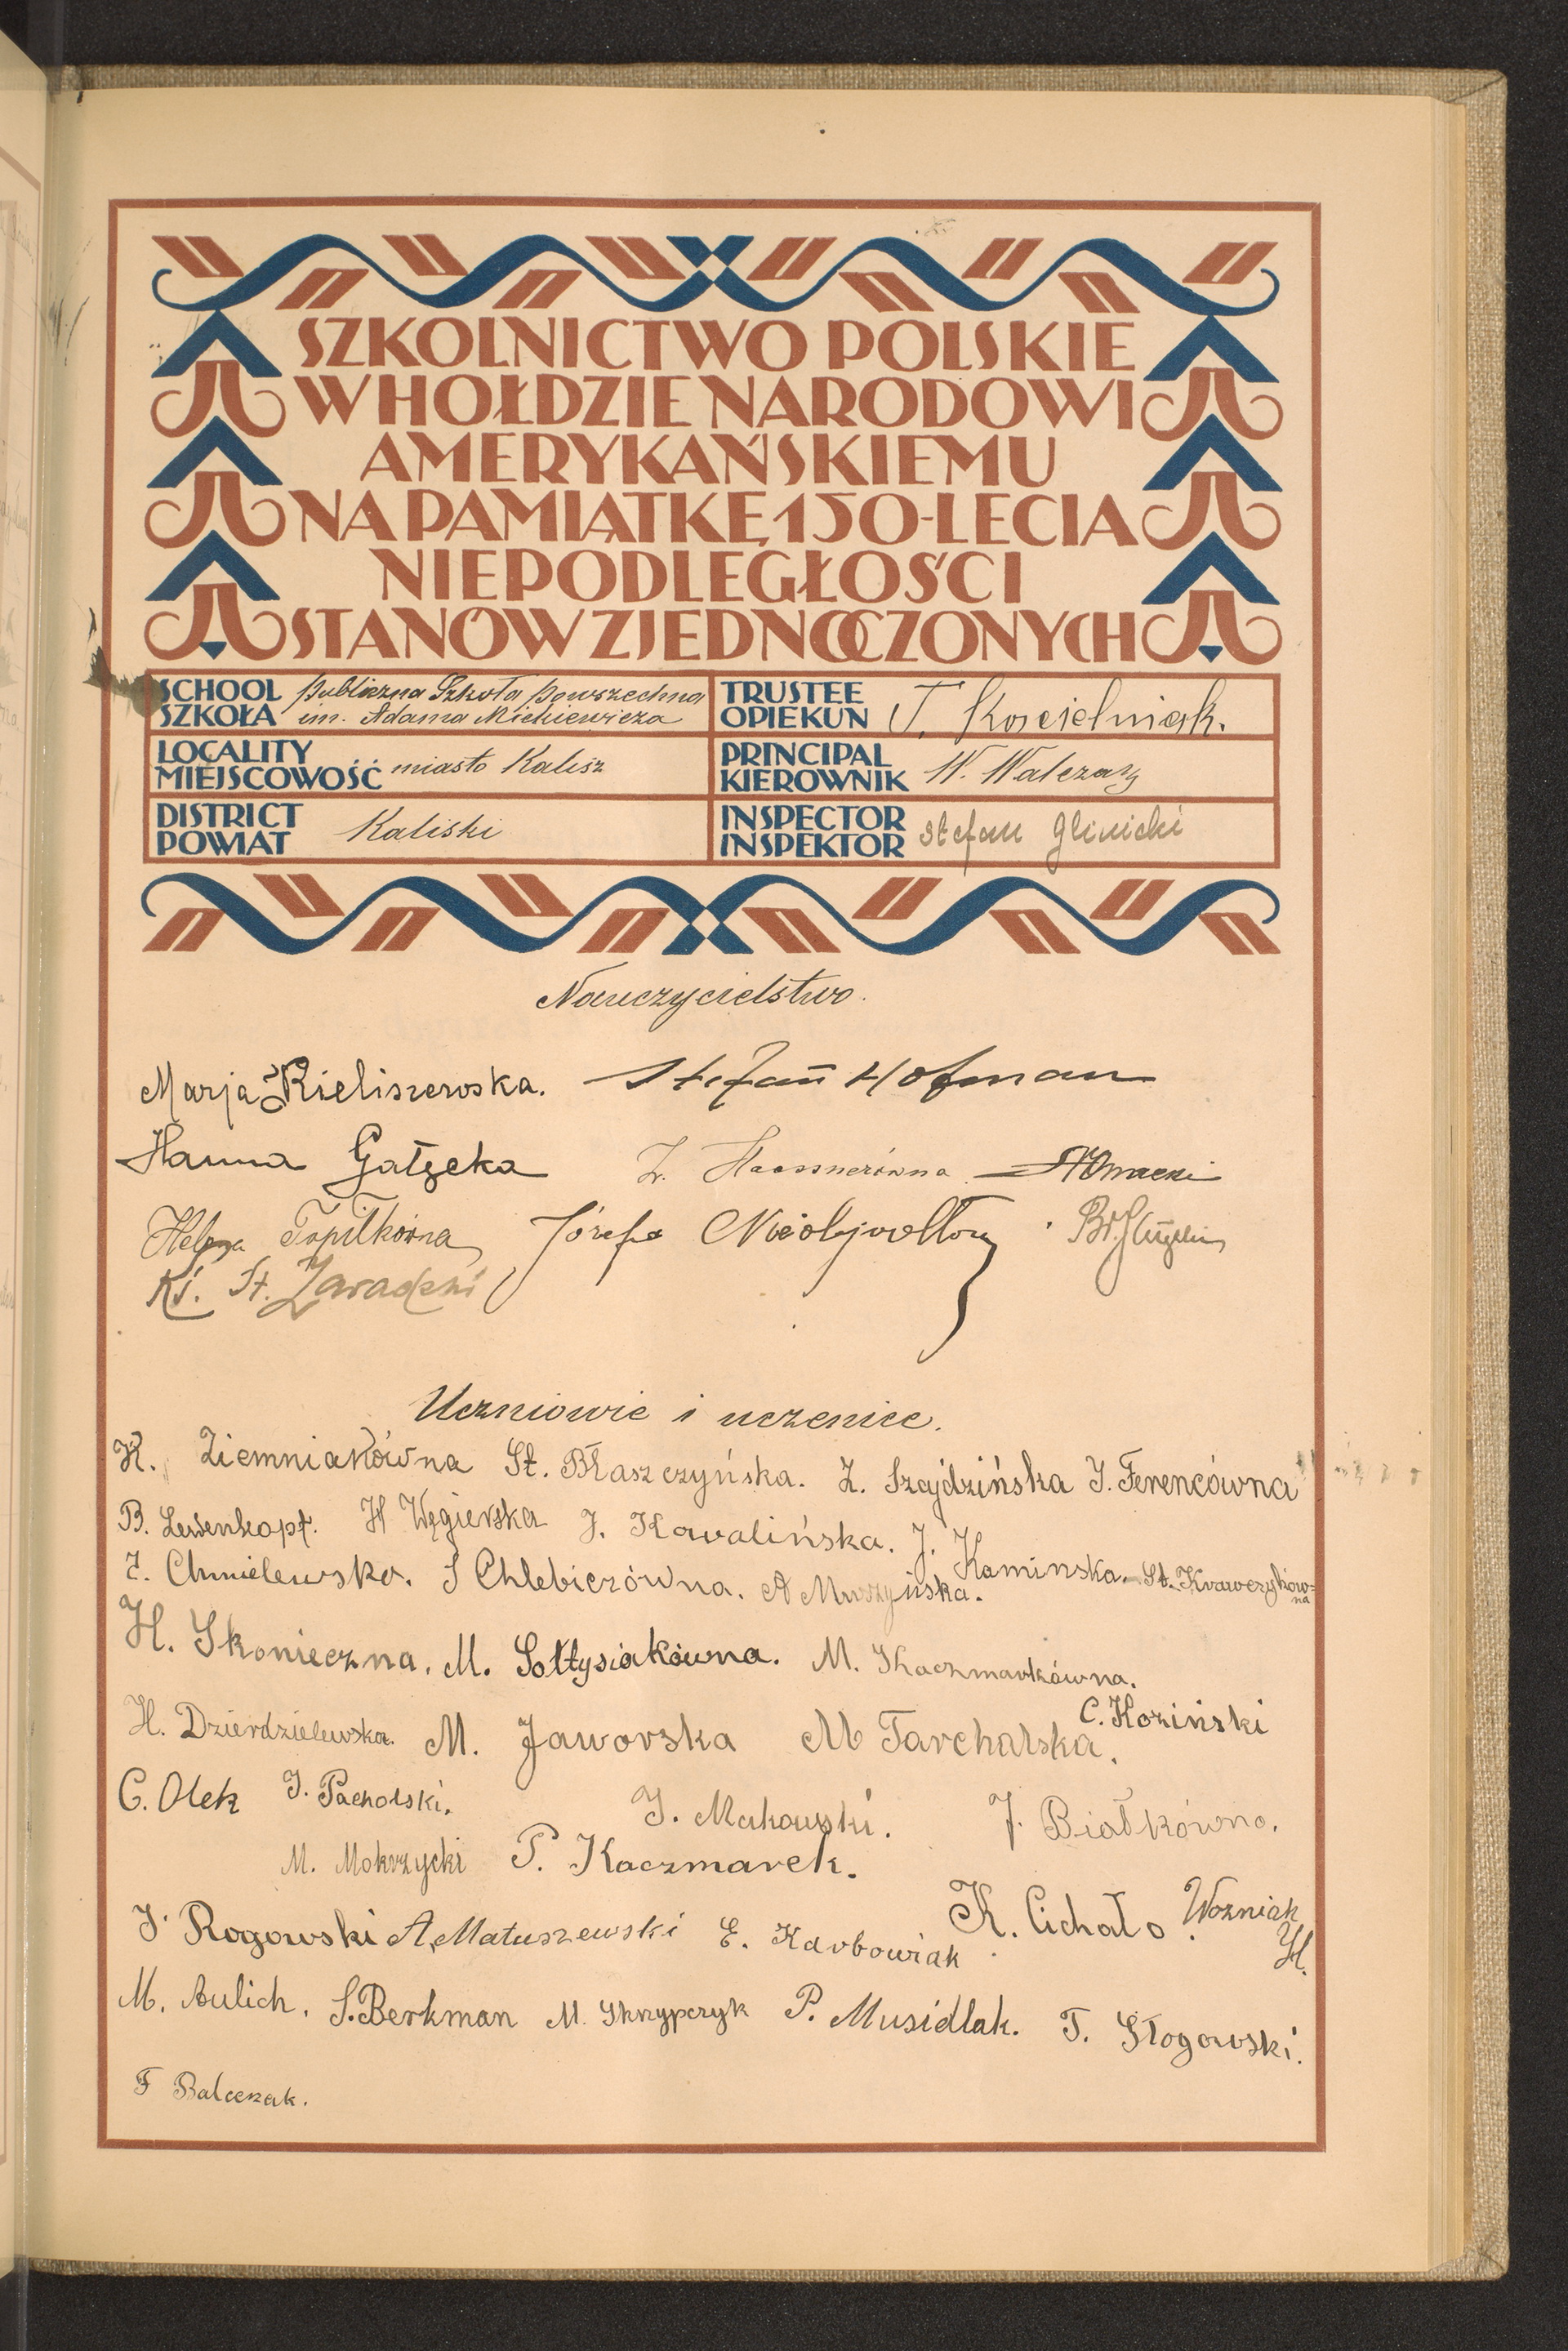 SZKOLNICTWO POLSKIE
W HOŁDZIE NARODOWI
AMERYKAŃSKIEMU
NA PAMIĄTKĘ 150-LECIA
NIEPODLEGŁOŚCI
STANÓW ZJEDNOCZONYCH
SCHOOL SZKOŁA Publiczna Szkoła powszechna
im. Adama Mickiewicza
TRUSTEE OPIEKUN T. Kościelniak.
LOCALITY MIEJSCOWOŚĆ miasto Kalisz
PRINCIPAL KIEROWNIK W. Walczak
DISTRICT POWIAT Kaliski
INSPECTOR INSPEKTOR Stefan Glinicki
Nauczycielstwo.
Marja Kieliszewska. Stefan Hofman
Hanna Gałęcka Z. Haessnerówna
Helena Topilkówna Józefa
Ks. St. Zaradzki
Uczniowie i uczenice.
K. Ziemniakówna St. Błaszczyńska. Z. Szajdzińska I. Ferencówna
B. Lewenkopf. H Węgierska J. Kowalińska. J. Kaminska. St. Krawczyków=
na
Z. Chmielewska. S Chlebiczówna. A Muszyńska.
H. Skonieczna. M. Sołtysiakówna. M. Kaczmarkówna.
H. Dzierdzielewska. M. Jaworska M Tarchalska. C. Koziński
C. Olek J. Pacholski. J. Makowski. J. Białkówna.
M. Mokrzycki P. Kaczmarek.
J. Rogowski A. Matuszewski E. Karbowiak K. Cichało. Wozniak
H.
M. Aulich. S. Berkman M. Skrzypczyk P. Musidlak. T. Słogowski.
F Balcerzak.